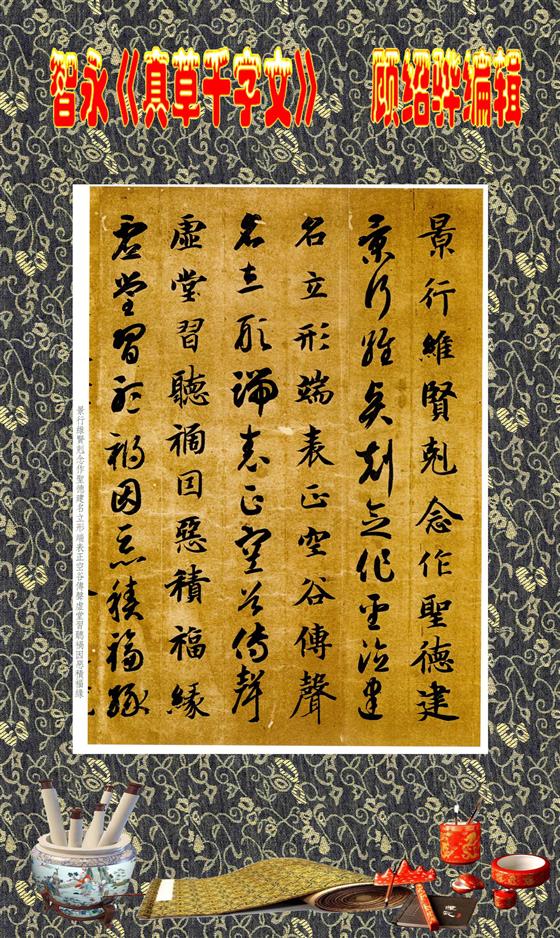 智永《真草千字文》 顾绍骅编辑
景行維賢剋念作聖德建
景行維賢剋念作聖德建
名立形端表正空谷傳聲
名立形端表正空谷傳聲
虛堂習聽禍因惡積福緣
虛堂習聽禍因惡積福緣
景行維賢剋念作聖德建名立形端表正空谷傳聲虛堂習聽禍因惡積福緣